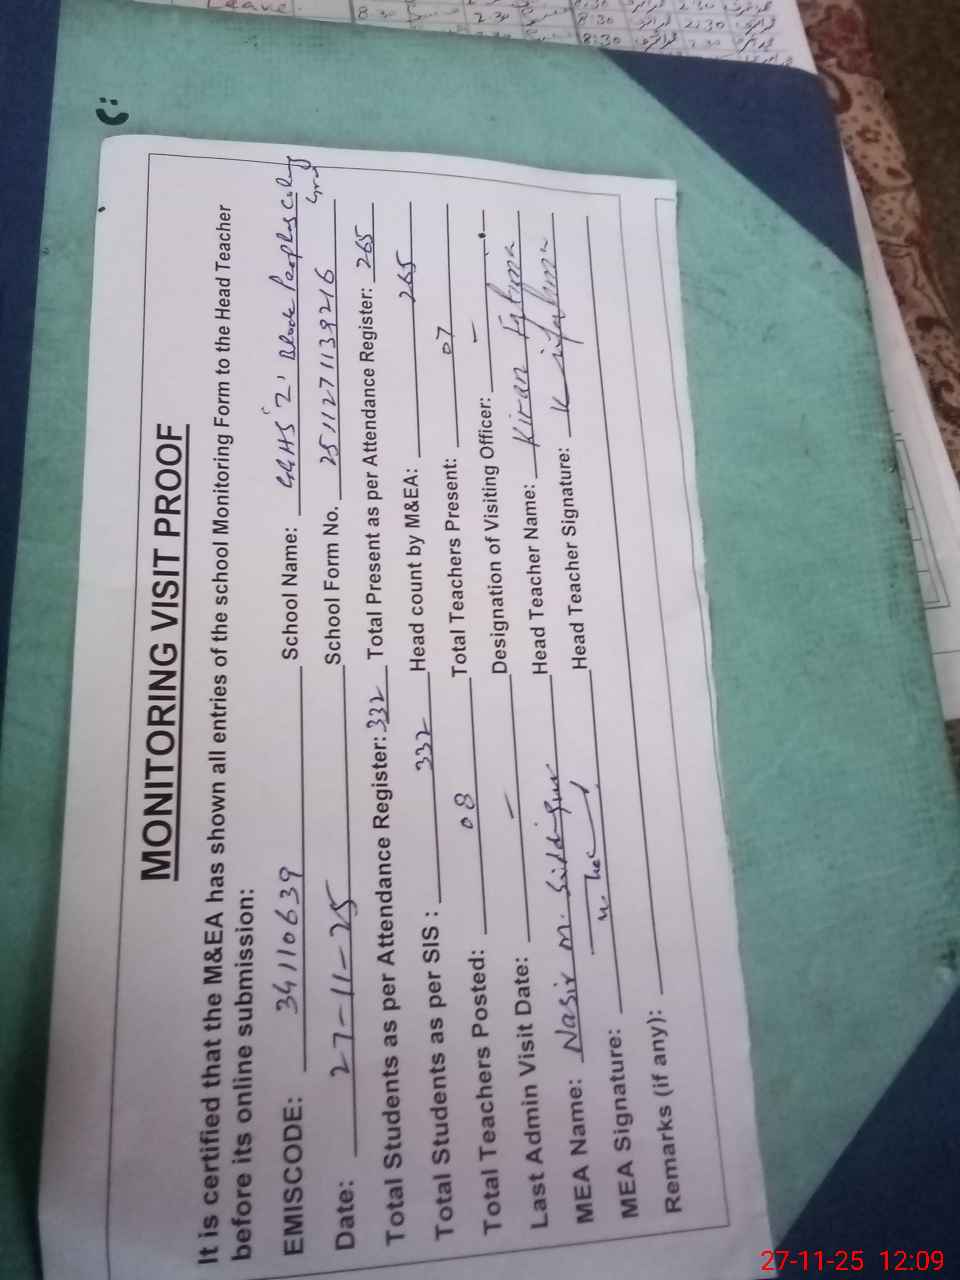 MONITORING VISIT PROOF
It is certified that the M&EA has shown all entries of the school Monitoring Form to the Head Teacher
before its online submission:
EMISCODE: 34110639 School Name: GGHS 'Z' Block Peoples Colony
Date: 27-11-25 School Form No. 2511271139216
Total Students as per Attendance Register: 332 Total Present as per Attendance Register: 265
Total Students as per SIS : 332 Head count by M&EA: 265
Total Teachers Posted: 08 Total Teachers Present: 07
Last Admin Visit Date: - Designation of Visiting Officer: -
MEA Name: Nasir M. Head Teacher Name: Kiran Fatima
MEA Signature: Head Teacher Signature:
Remarks (if any):
27-11-25 12:09